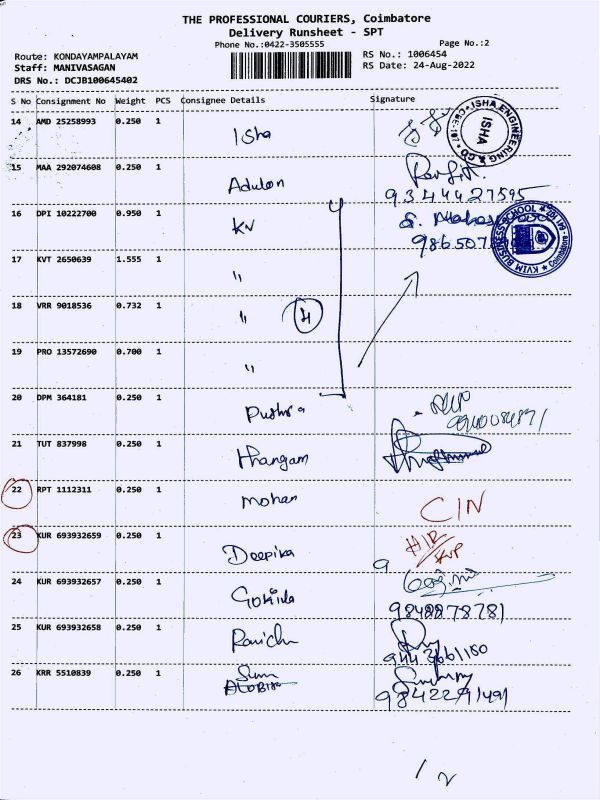 THE PROFESSIONAL COURIERS, Coimbatore
Delivery Runsheet - SPT
Phone No.:0422-3505555
Page No.:2
Route: KONDAYAMPALAYAM
RS No.: 1006454
Staff: MANIVASAGAN
RS Date: 24-Aug-2022
DRS No.: DCJB100645402
S No Consignment No Weight PCS Consignee Details Signature
14 AMD 25258993 0.250 1 Isha
ISHA ENGINEERING & CO
ISHA
15 MAA 292074608 0.250 1 Adulon
9344427595
16 DPI 10222700 0.950 1 KV
KVIM BUSINESS SCHOOL
Coimbatore
17 KVT 2650639 1.555 1 "
18 VRR 9018536 0.732 1 " 4
19 PRO 13572690 0.700 1 "
20 DPM 364181 0.250 1
21 TUT 837998 0.250 1 Thangam
22 RPT 1112311 0.250 1 Mohan
23 KUR 693932659 0.250 1 Deepika
24 KUR 693932657 0.250 1
9848878781
25 KUR 693932658 0.250 1
26 KRR 5510839 0.250 1
9842291491